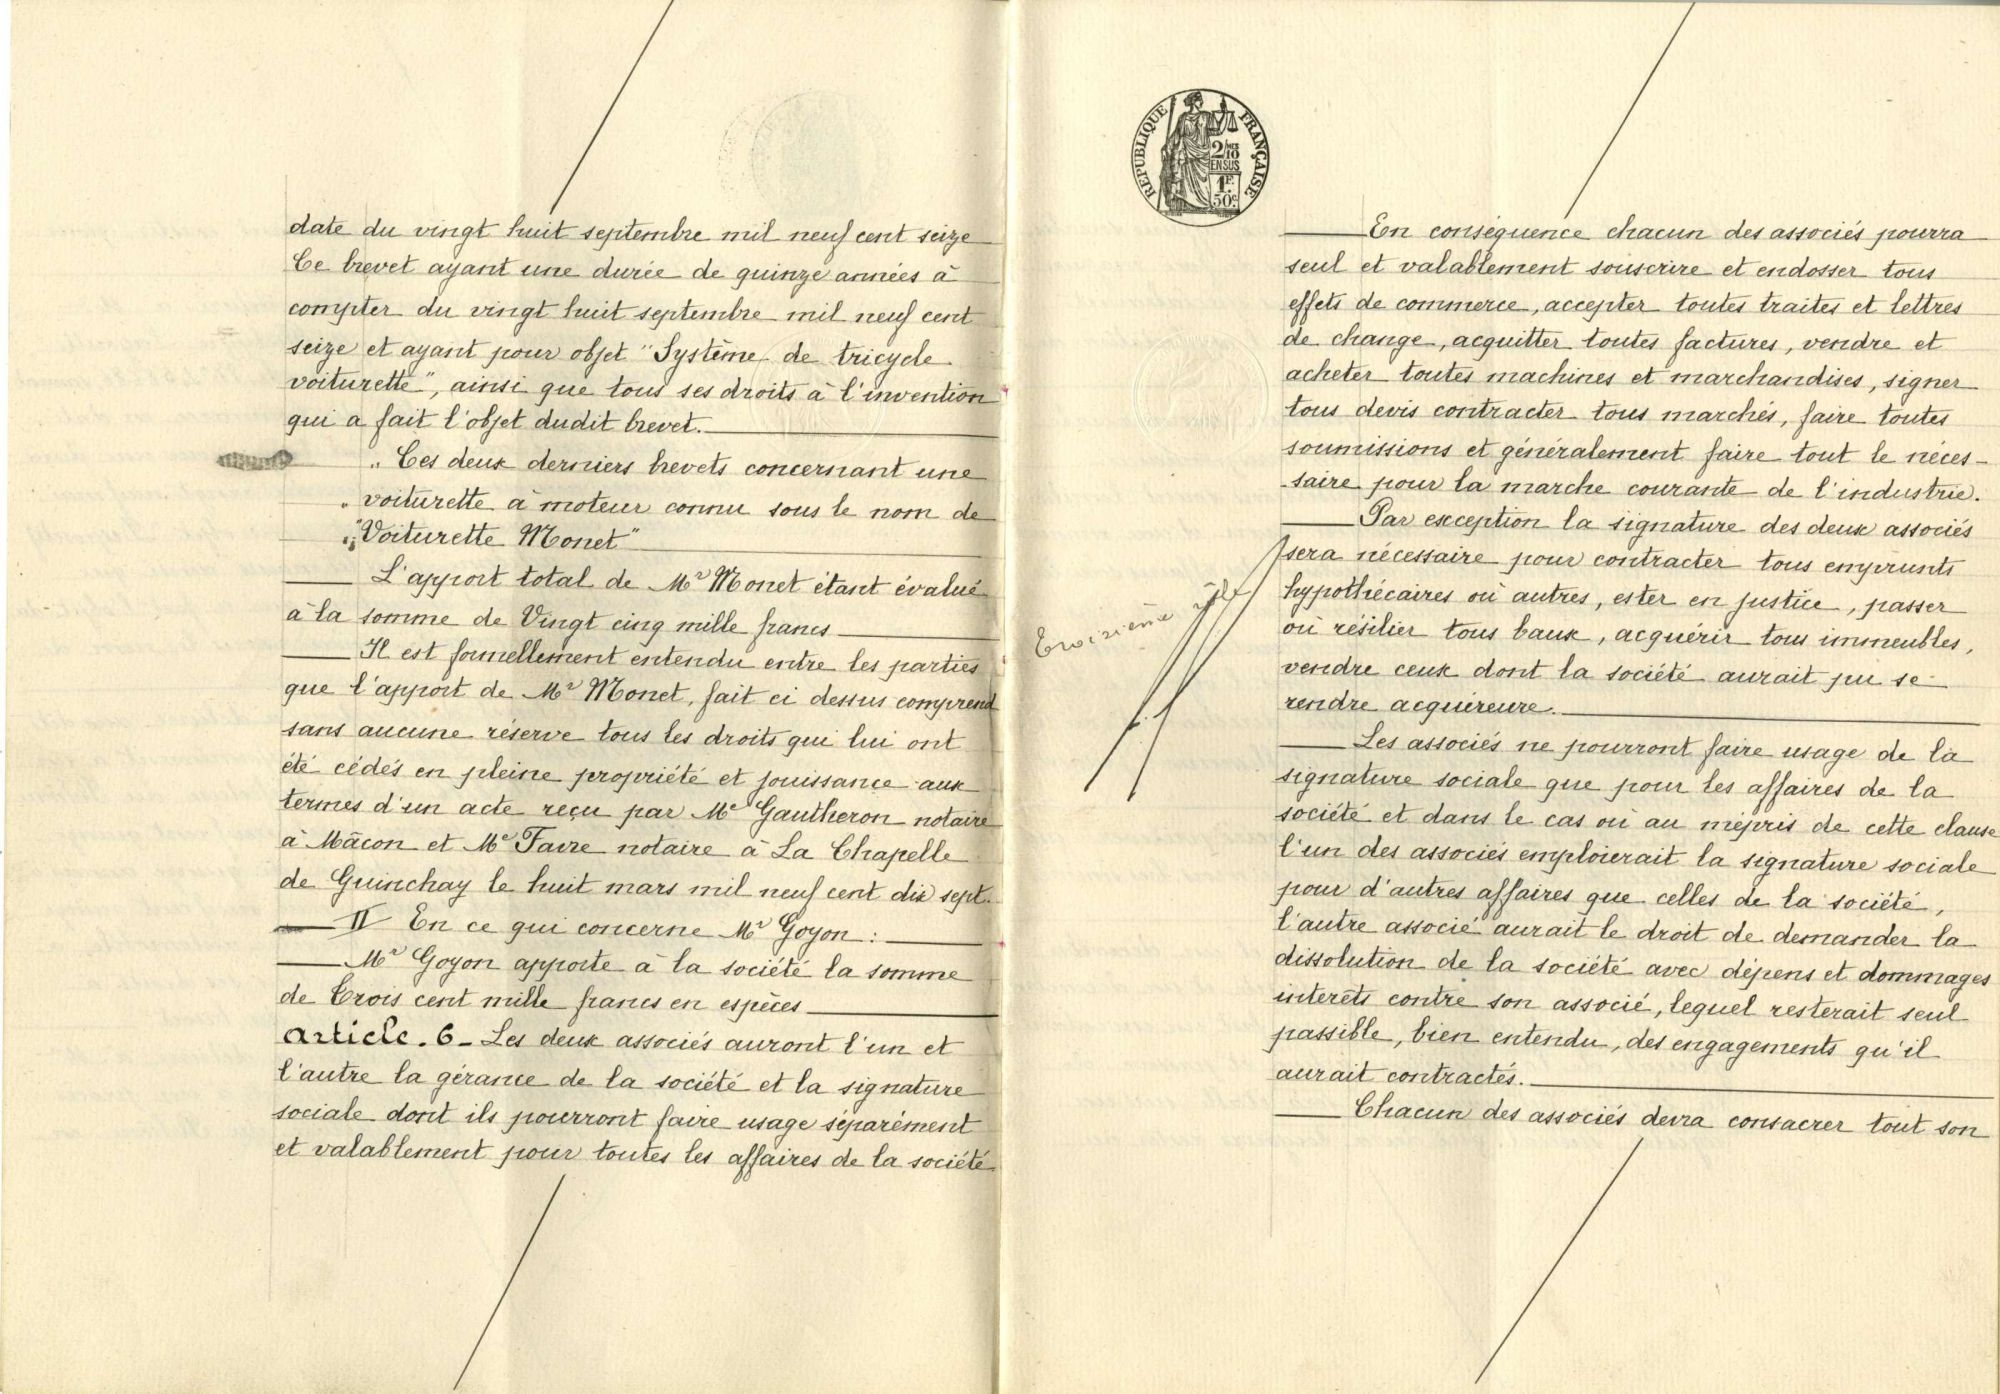 date du vingt huit septembre mil neuf cent seize
Ce brevet ayant une durée de quinze années à
compter du vingt huit septembre mil neuf cent
seize et ayant pour objet "Système de tricycle
voiturette", ainsi que tous ses droits à l'invention
qui a fait l'objet dudit brevet.
" Ces deux derniers brevets concernant une
" voiturette à moteur connu sous le nom de
" "Voiturette Monet"
L'apport total de Mr Monet étant évalué
à la somme de Vingt cinq mille francs
Il est formellement entendu entre les parties
que l'apport de Mr Monet, fait ci dessus comprend
sans aucune réserve tous les droits qui lui ont
été cédés en pleine propriété et jouissance aux
termes d'un acte reçu par Me Gautheron notaire
à Mâcon et Me Favre notaire à La Chapelle
de Guinchay le huit mars mil neuf cent dix sept.
II En ce qui concerne Mr Goyon :
Mr Goyon apporte à la société la somme
de Trois cent mille francs en espèces
Article. 6 - Les deux associés auront l'un et
l'autre la gérance de la société et la signature
sociale dont ils pourront faire usage séparément
et valablement pour toutes les affaires de la société.
RÉPUBLIQUE FRANÇAISE
2/10
EN SUS
1F.
50c.
En conséquence chacun des associés pourra
seul et valablement souscrire et endosser tous
effets de commerce, accepter toutes traites et lettres
de change, acquitter toutes factures, vendre et
acheter toutes machines et marchandises, signer
tous devis contracter tous marchés, faire toutes
soumissions et généralement faire tout le néces-
-saire pour la marche courante de l'industrie.
Par exception la signature des deux associés
sera nécessaire pour contracter tous emprunts
hypothécaires où autres, ester en justice, passer
où résilier tous baux, acquérir tous immeubles,
vendre ceux dont la société aurait pu se
rendre acquéreure.
Troisième rôle
Les associés ne pourront faire usage de la
signature sociale que pour les affaires de la
société et dans le cas où au mépris de cette clause
l'un des associés emploierait la signature sociale
pour d'autres affaires que celles de la société,
l'autre associé aurait le droit de demander la
dissolution de la société avec dépens et dommages
interêts contre son associé, lequel resterait seul
passible, bien entendu, des engagements qu'il
aurait contractés.
Chacun des associés devra consacrer tout son